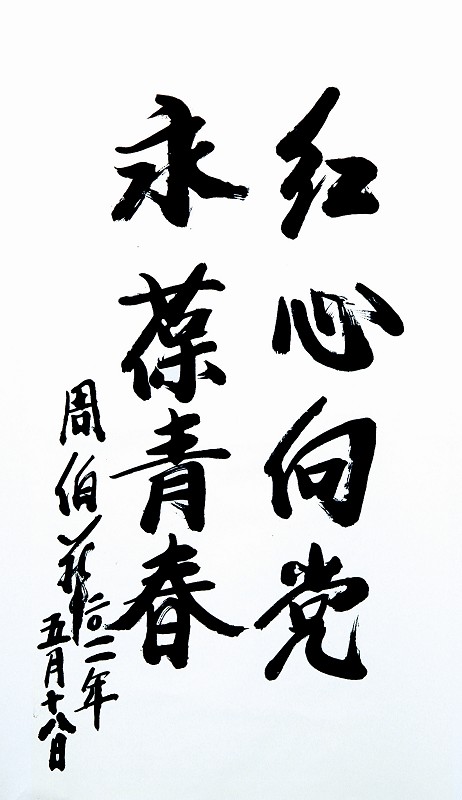 红心向党
永葆青春
周伯
二〇一一年
五月十八日